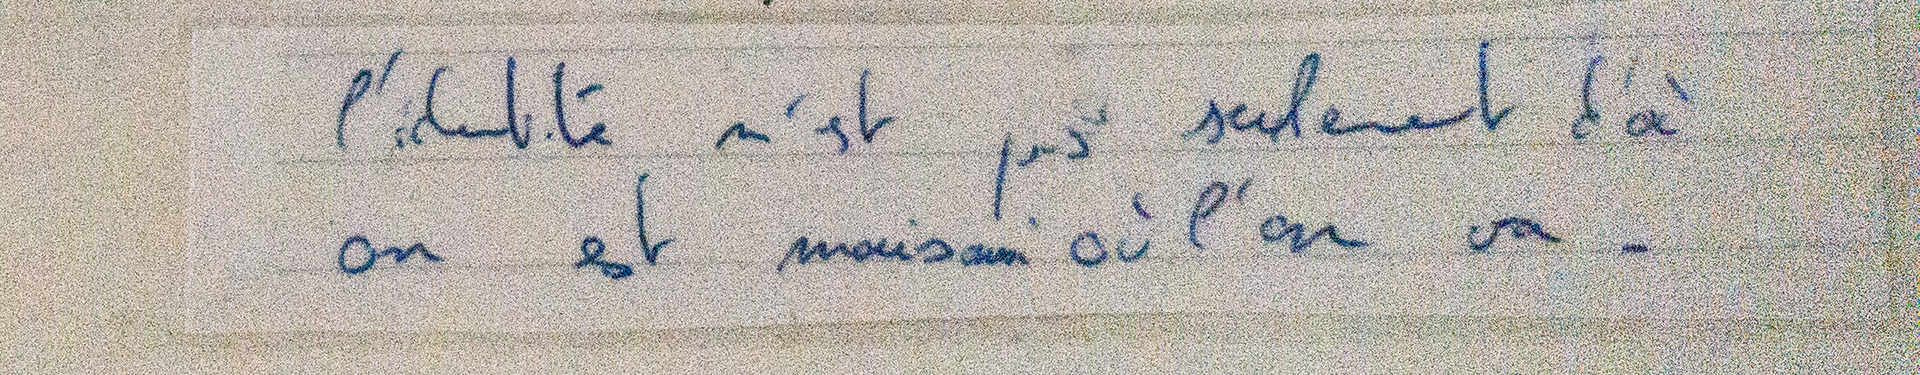 l'identité n'est pas seulement d'à
on est mais où l'on va -